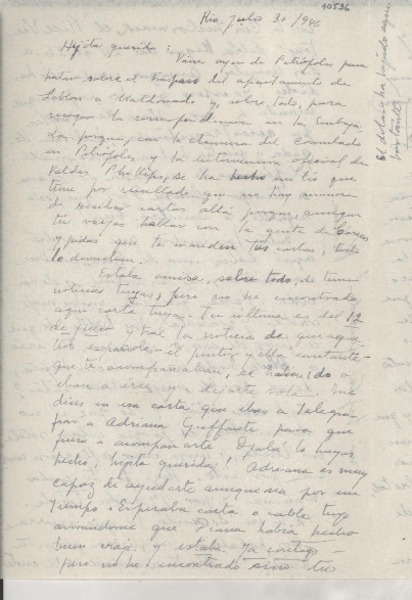 10536
Rio, Julio 30/946
Hijita querida:
Vine ayer de Petrópolis para
hablar sobre el traspaso del apartamento de
Leblon a Maldonado y, sobre todo, para
recoger la correspondencia en la Embaja
da porque, con la clausura del Consulado
en Petrópolis y la intervención oficial de
Valdés Phillips, se ha hecho un lío que
tiene por resultado que no hay manera
de recibir cartas allá porque, aunque
tú vayas hablar con la gente de Correos
y pidas que te manden tus cartas, todo
lo devuelven.
Estaba ansiosa, sobre todo, de tener
noticias tuyas, pero no he encontrado
aquí carta tuya. Tu última es del 12
de julio y trae la noticia de que aque
llos españoles - el pintor y ella cantante -
que te acompañaban, se habían ido o
iban a irse y a dejarte sola. Me
dices en esa carta que ibas a telegra
fiar a Adriana para que
fuera a acompañarte. Ojalá lo hayas
hecho, hijita querida! Adriana es muy
capaz de ayudarte aunque sea por un
tiempo. Esperaba carta o cable tuyo
diciéndome que había hecho
buen viaje y estaba ya contigo -
pero no he encontrado sino tu
El dólar ha bajado aquí